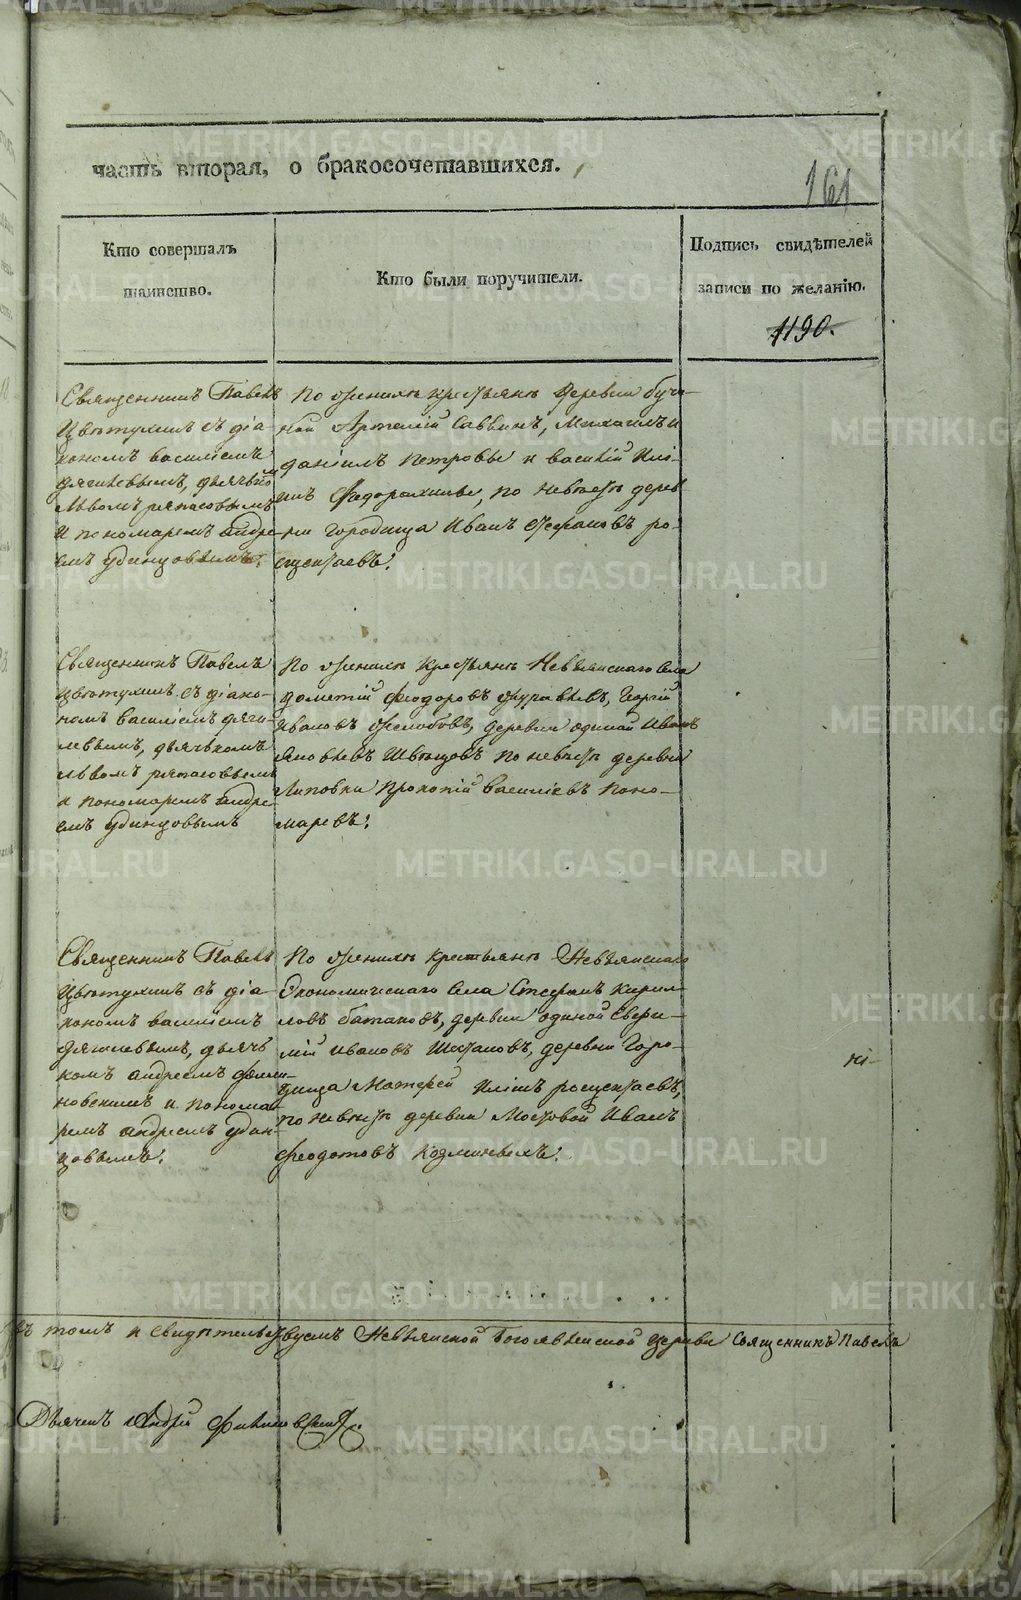 часть вторая, о бракосочетавшихся.
161
Кто совершалъ
таинство.
Кто были поручители.
Подпись свидѣтелей
записи по желанію.
1190.
Священникъ Павелъ
Цвѣтухинъ съ діа-
кономъ василіемъ
дягилевымъ, дьячькомъ
Львомъ ряпасовымъ
и пономаремъ андре-
емъ удинцовымъ.
По женихѣ крестьянѣ деревни бучи-
ной Артемій Саввинъ, Михаилъ и
даніилъ Петровы и василій Илі-
инъ Федорахины, по невѣстѣ дерев-
ни городища Иванъ Стефановъ ро-
щектаевъ.
Священникъ Павелъ
цвѣтухинъ съ діако-
номъ василіемъ дяги-
левымъ, дьячькомъ
львомъ ряпасовымъ
и пономаремъ андре-
емъ удинцовымъ
По женихѣ крестьянѣ Невьянскаго села
дометій феодоровъ журавлевъ, Георгій
Ивановъ желобовъ, деревни одиной Иванъ
Яковлевъ Швецовъ по невѣстѣ деревни
Липовки Прокопій василіевъ поно-
маревъ.
Священникъ Павелъ
Цвѣтухинъ съ діа-
кономъ василіемъ
дягилевымъ, дьячь-
комъ андреемъ филипповскимъ и понома-
ремъ андреемъ удин-
цовымъ.
По женихѣ крестьянѣ Невьянскаго
Экономическаго села Стефанъ кирил-
ловъ батаковъ, деревни одиной Евфи-
мій ивановъ Шестаковъ, деревни Горо-
дища Матфей Ильинъ рощектаевъ,
по невѣстѣ деревни Мостовой Иванъ
феодотовъ Козминыхъ.
въ томъ и свидѣтельствуемъ Невьянской Богоявленской церкви Священникъ Павелъ
Дьячекъ Андрей Филиповский
METRIKI.GASO-URAL.RU